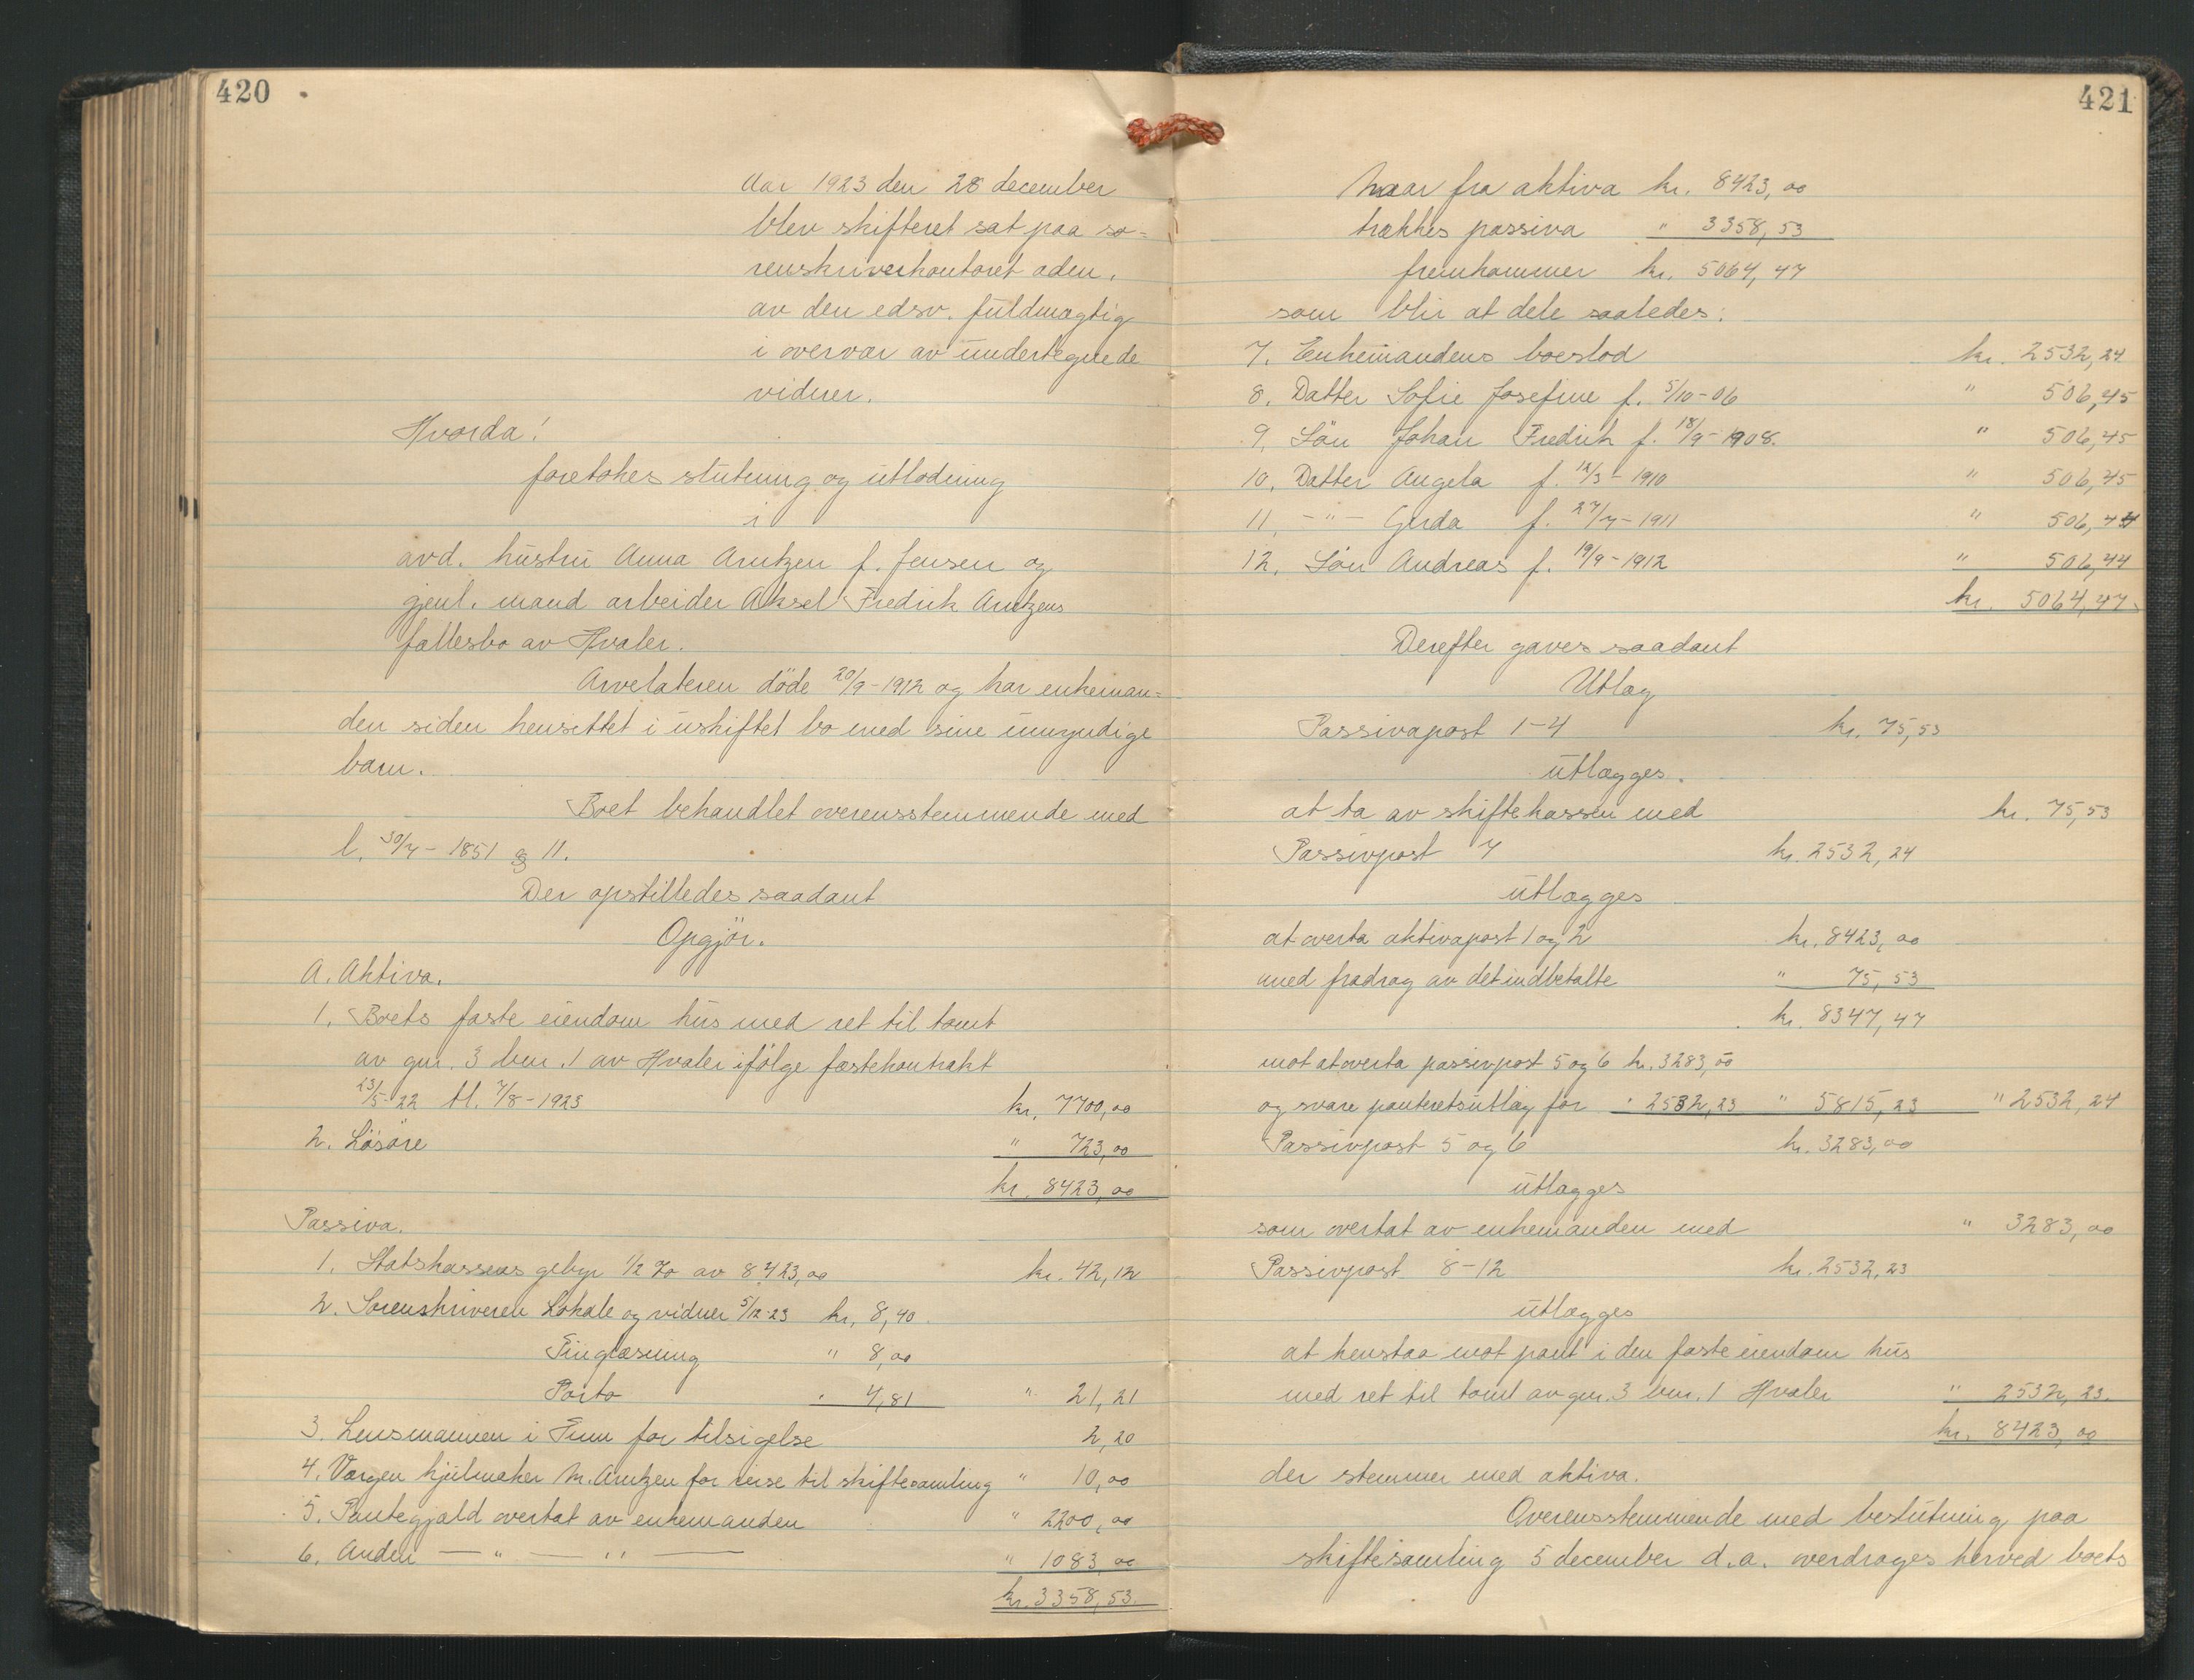 420
Aar 1923 den 28 december
blev skifteret sat paa so-
renskriverkontoret aden.
av den edsv. fuldmægtig
i overvær av undertegnede
vidner.
Hvorda!
foretokes slutning og utlodning
i
avd. hustru Anna Arntzen f. Jensen og
gjenl. mand arbeider Aksel Fredrik Arntzens
fællesbo av Hvaler.
Arvelateren döde 20/9-1912 og har enkeman-
den siden hensittet i uskiftet bo med sine umyndige
barn.
Boet behandlet overensstemmende med
l. 30/7-1851 § 11.
Der opstilledes saadant
Opgjör.
A. Aktiva.
1. Boets faste eiendom hus med ret til tomt
av gnr. 3 bnr. 1 av Hvaler ifölge fæstekontrakt
23/5-22 tl. 7/8-1923 kr. 7700,00
2. Lösöre " 723,00
kr. 8423,00
Passiva.
1. Statskassens gebyr 1/2 % av 8423,00 kr. 42,12
2. Sorenskriveren Lokale og vidner 5/12-23 kr. 8,40
Tinglæsning " 8,00
Porto " 4,81 " 21,21
3. Lensmannen i Tune for tilsigelse 2,20
4. Værgen hjulmaker M. Arntzen for reise til skiftesamling " 10,00
5. Pantegjæld overtat av enkemanden " 2200,00
6. Anden — " — " — " 1083,00
kr. 3358,53.
421
Naar fra aktiva kr. 8423,00
trækkes passiva " 3358,53
fremkommer kr. 5064,47
som blir at dele saaledes:
7. Enkemandens boeslod kr. 2532,24
8. Datter Sofie Josefine f. 5/10-06 " 506,45
9. Sön Johan Fredrik f. 18/9-1908. " 506,45
10. Datter Angela f. 12/3-1910 " 506,45
11. -"- Gerda f. 27/7-1911 " 506,44
12. Sön Andreas f. 19/9-1912 " 506,44
kr. 5064,47.
Derefter gaves saadant
Utlæg
Passivapost 1-4 kr. 75,53
utlægges.
at ta av skiftekassen med kr. 75,53
Passivpost 7 kr. 2532,24
utlægges
at overta aktivapost 1 og 2 kr. 8423,00
med fradrag av det indbetalte " 75,53
kr. 8347,47
mot at overta passivpost 5 og 6 kr. 3283,00
og svare panteretsutlæg for " 2532,23 " 5815,23 " 2532,24
Passivpost 5 og 6 kr. 3283,00
utlægges
som overtat av enkemanden med " 3283,00
Passivpost 8-12 kr. 2532,23
utlægges
at henstaa mot pant i den faste eiendom hus
med ret til tomt av gnr. 3 bnr. 1 Hvaler " 2532,23.
kr. 8423,00
der stemmer med aktiva.
Overensstemmende med beslutning paa
skiftesamling 5 december d.a. overdrages herved boets